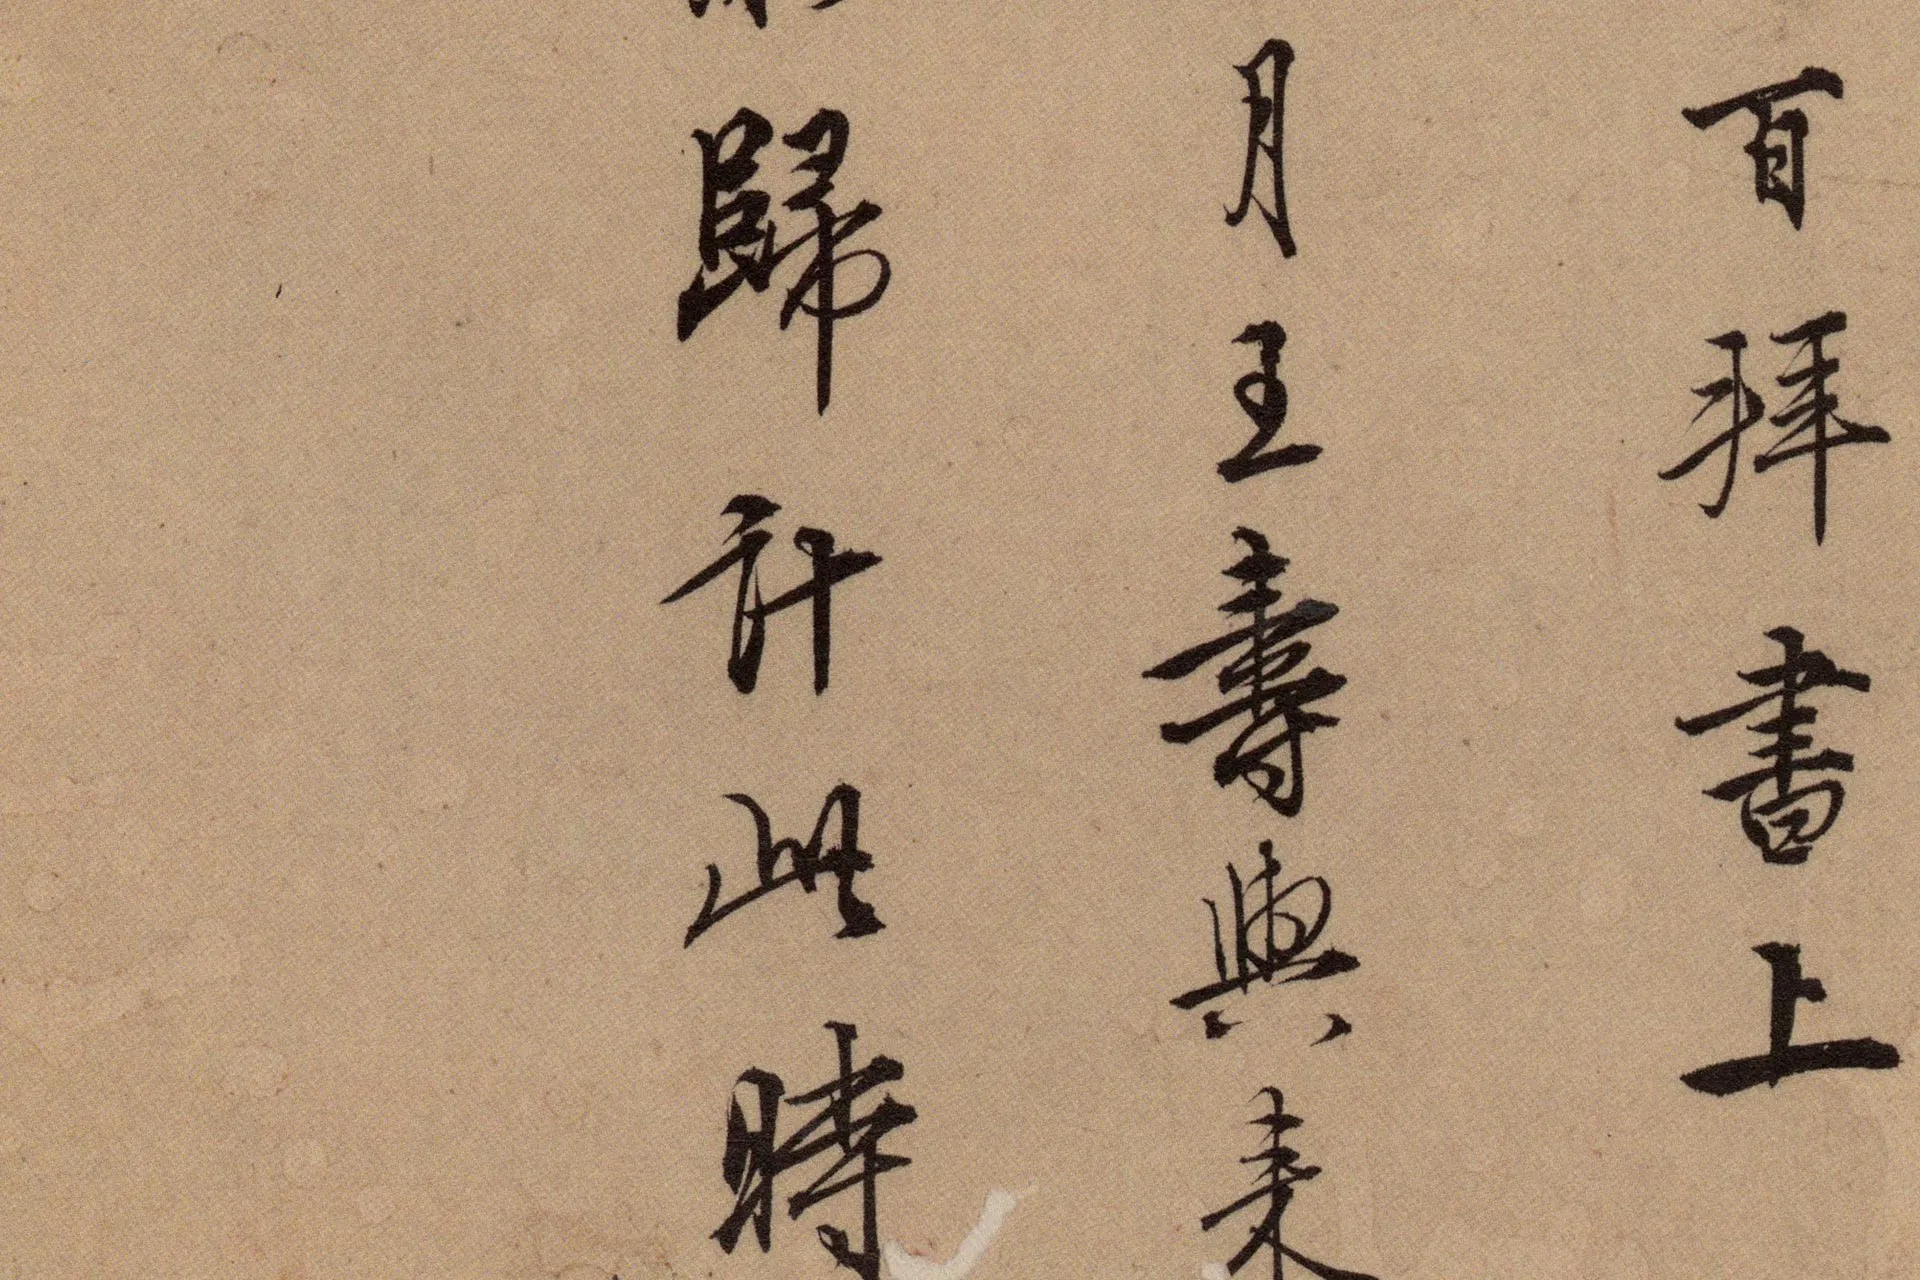 百拜書上
月王壽興來
歸計此時